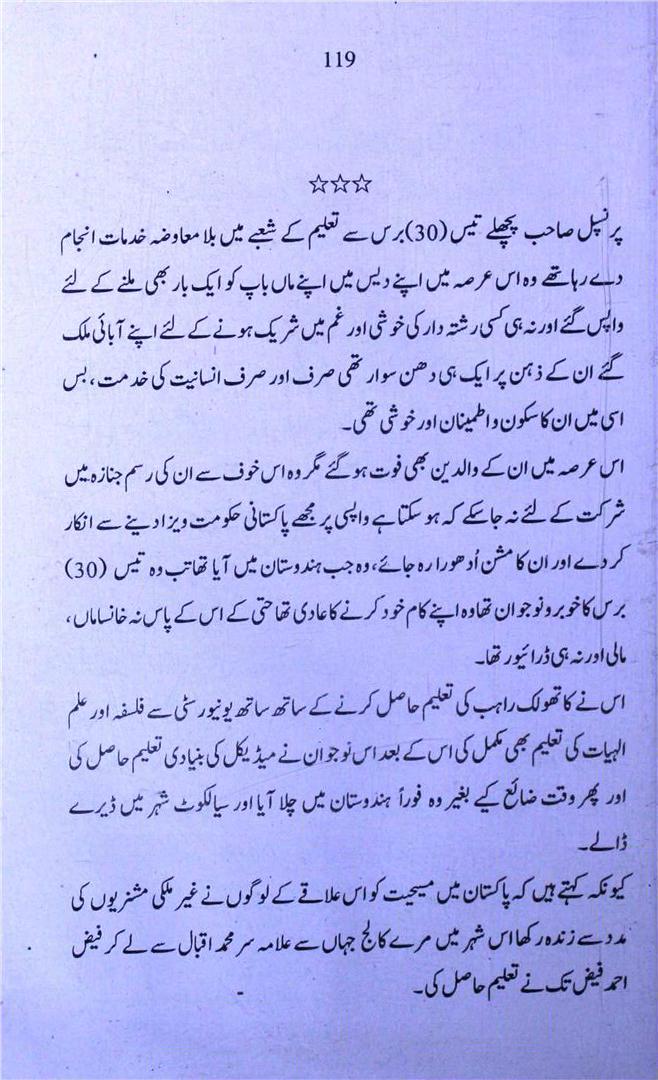 119
☆☆☆
پرنسپل صاحب پچھلے تیس (30) برس سے تعلیم کے شعبے میں بلا معاوضہ خدمات انجام
دے رہا تھے وہ اس عرصہ میں اپنے دیس میں اپنے ماں باپ کو ایک بار بھی ملنے کے لئے
واپس گئے اور نہ ہی کسی رشتہ دار کی خوشی اور غم میں شریک ہونے کے لئے اپنے آبائی ملک
گئے ان کے ذہن پر ایک ہی دھن سوار تھی صرف اور صرف انسانیت کی خدمت، بس
اسی میں ان کا سکون و اطمینان اور خوشی تھی۔
اس عرصہ میں ان کے والدین بھی فوت ہو گئے مگر وہ اس خوف سے ان کی رسم جنازہ میں
شرکت کے لئے نہ جا سکے کہ ہو سکتا ہے واپسی پر مجھے پاکستانی حکومت ویزا دینے سے انکار
کر دے اور ان کا مشن اُدھورا رہ جائے، وہ جب ہندوستان میں آیا تھا تب وہ تیس (30)
برس کا خوبرو نوجوان تھا وہ اپنے کام خود کرنے کا عادی تھا حتی کے اس کے پاس نہ خانساماں،
مالی اور نہ ہی ڈرائیور تھا۔
اس نے کاتھولک راہب کی تعلیم حاصل کرنے کے ساتھ ساتھ یونیورسٹی سے فلسفہ اور علم
الہیات کی تعلیم بھی مکمل کی اس کے بعد اس نوجوان نے میڈیکل کی بنیادی تعلیم حاصل کی
اور پھر وقت ضائع کیے بغیر وہ فوراً ہندوستان میں چلا آیا اور سیالکوٹ شہر میں ڈیرے
ڈالے۔
کیونکہ کہتے ہیں کہ پاکستان میں مسیحیت کو اس علاقے کے لوگوں نے غیر ملکی مشنریوں کی
مدد سے زندہ رکھا اس شہر میں مرے کالج جہاں سے علامہ سر محمد اقبال سے لے کر فیض
احمد فیض تک نے تعلیم حاصل کی۔